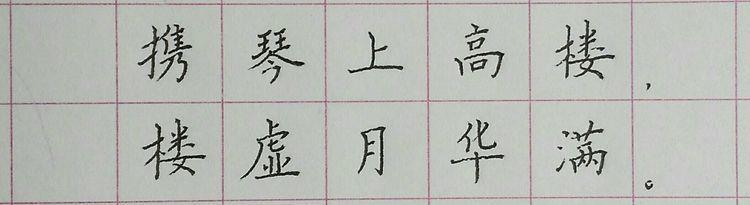 携琴上高楼，
楼虚月华满。